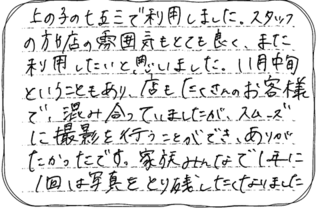 上の子の七五三で利用しました。スタッフ
の方も店の雰囲気もとても良く、また
利用したいと思いました。11月中旬
ということもあり、店もたくさんのお客様
で、混み合っていましたが、スムーズ
に撮影を行うことができ、ありが
たかったです。家族みんなで1年に
1回は写真をとり残したくなりました